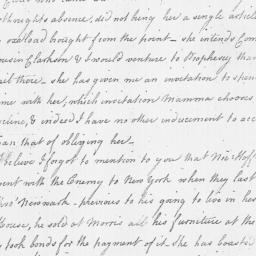 thnights absence, did not bring her a single article
load bought from the point - she intends
Clarkson & I would venture to Prophesey
there - she has given me an invitation to spen
me with her, which invitation Mamma chooses
cline, & indeed I have no other inducement to acc
an that of obliging her -
I believe I forgot to mention to you that Mr Hoff
ent with the Enemy to New York when they last
thro' Newwark - previous to his going to live in hes
House, he sold at Morris all his furniture at the
took bonds for the payment of it. She has boasted